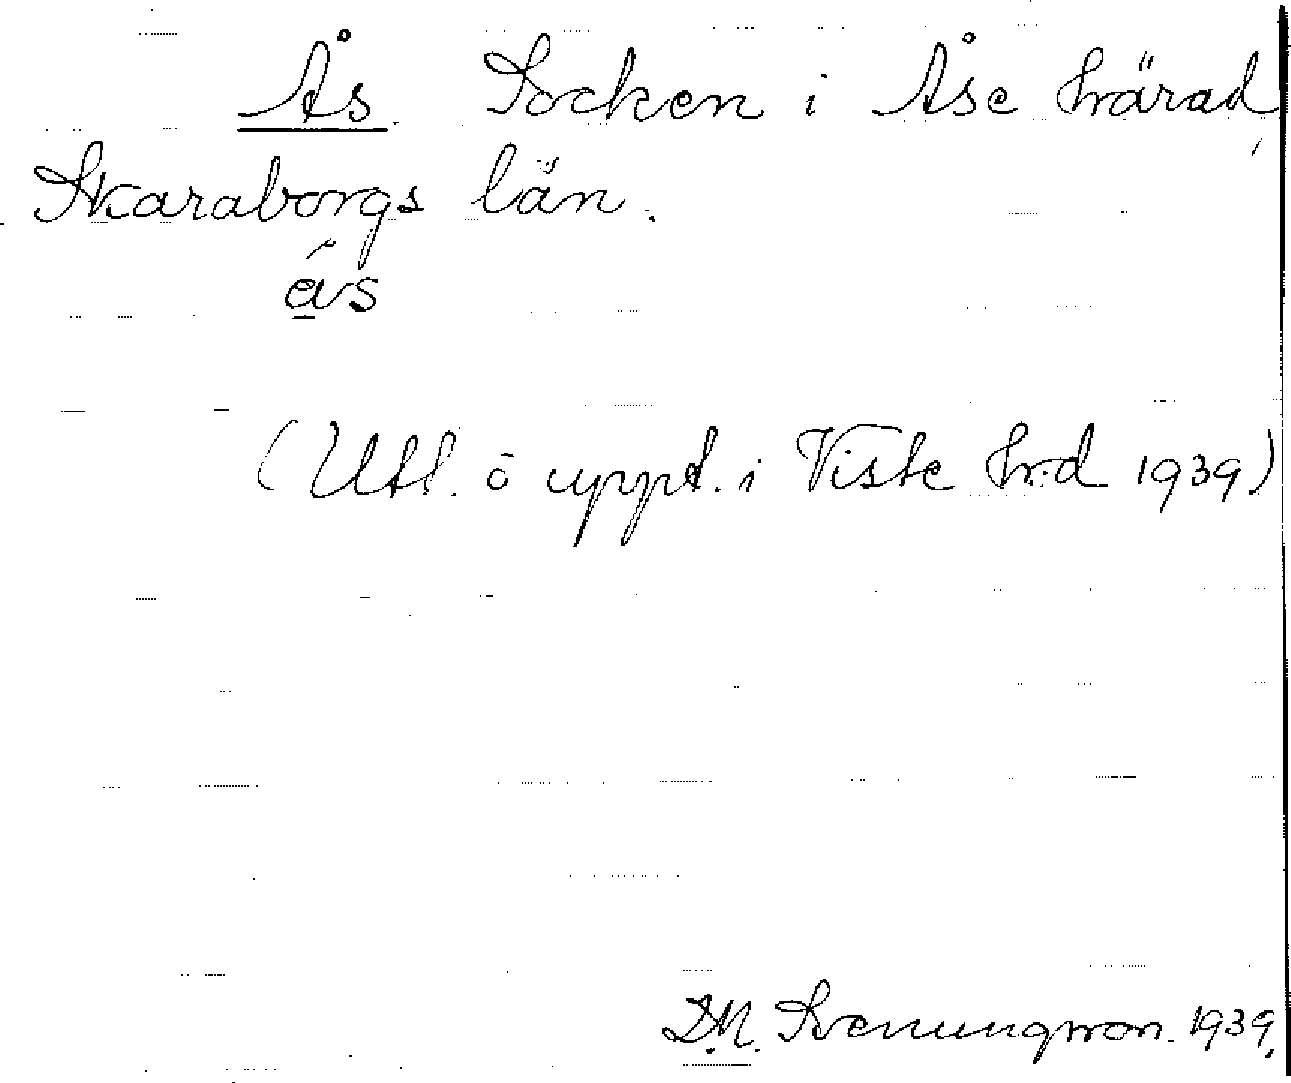 Ås. Socken i Åse härad,
Skaraborgs län.
ás
(Utl. o uppt. i Viste hrd 1939)
D.N. Svenungsson. 1939.